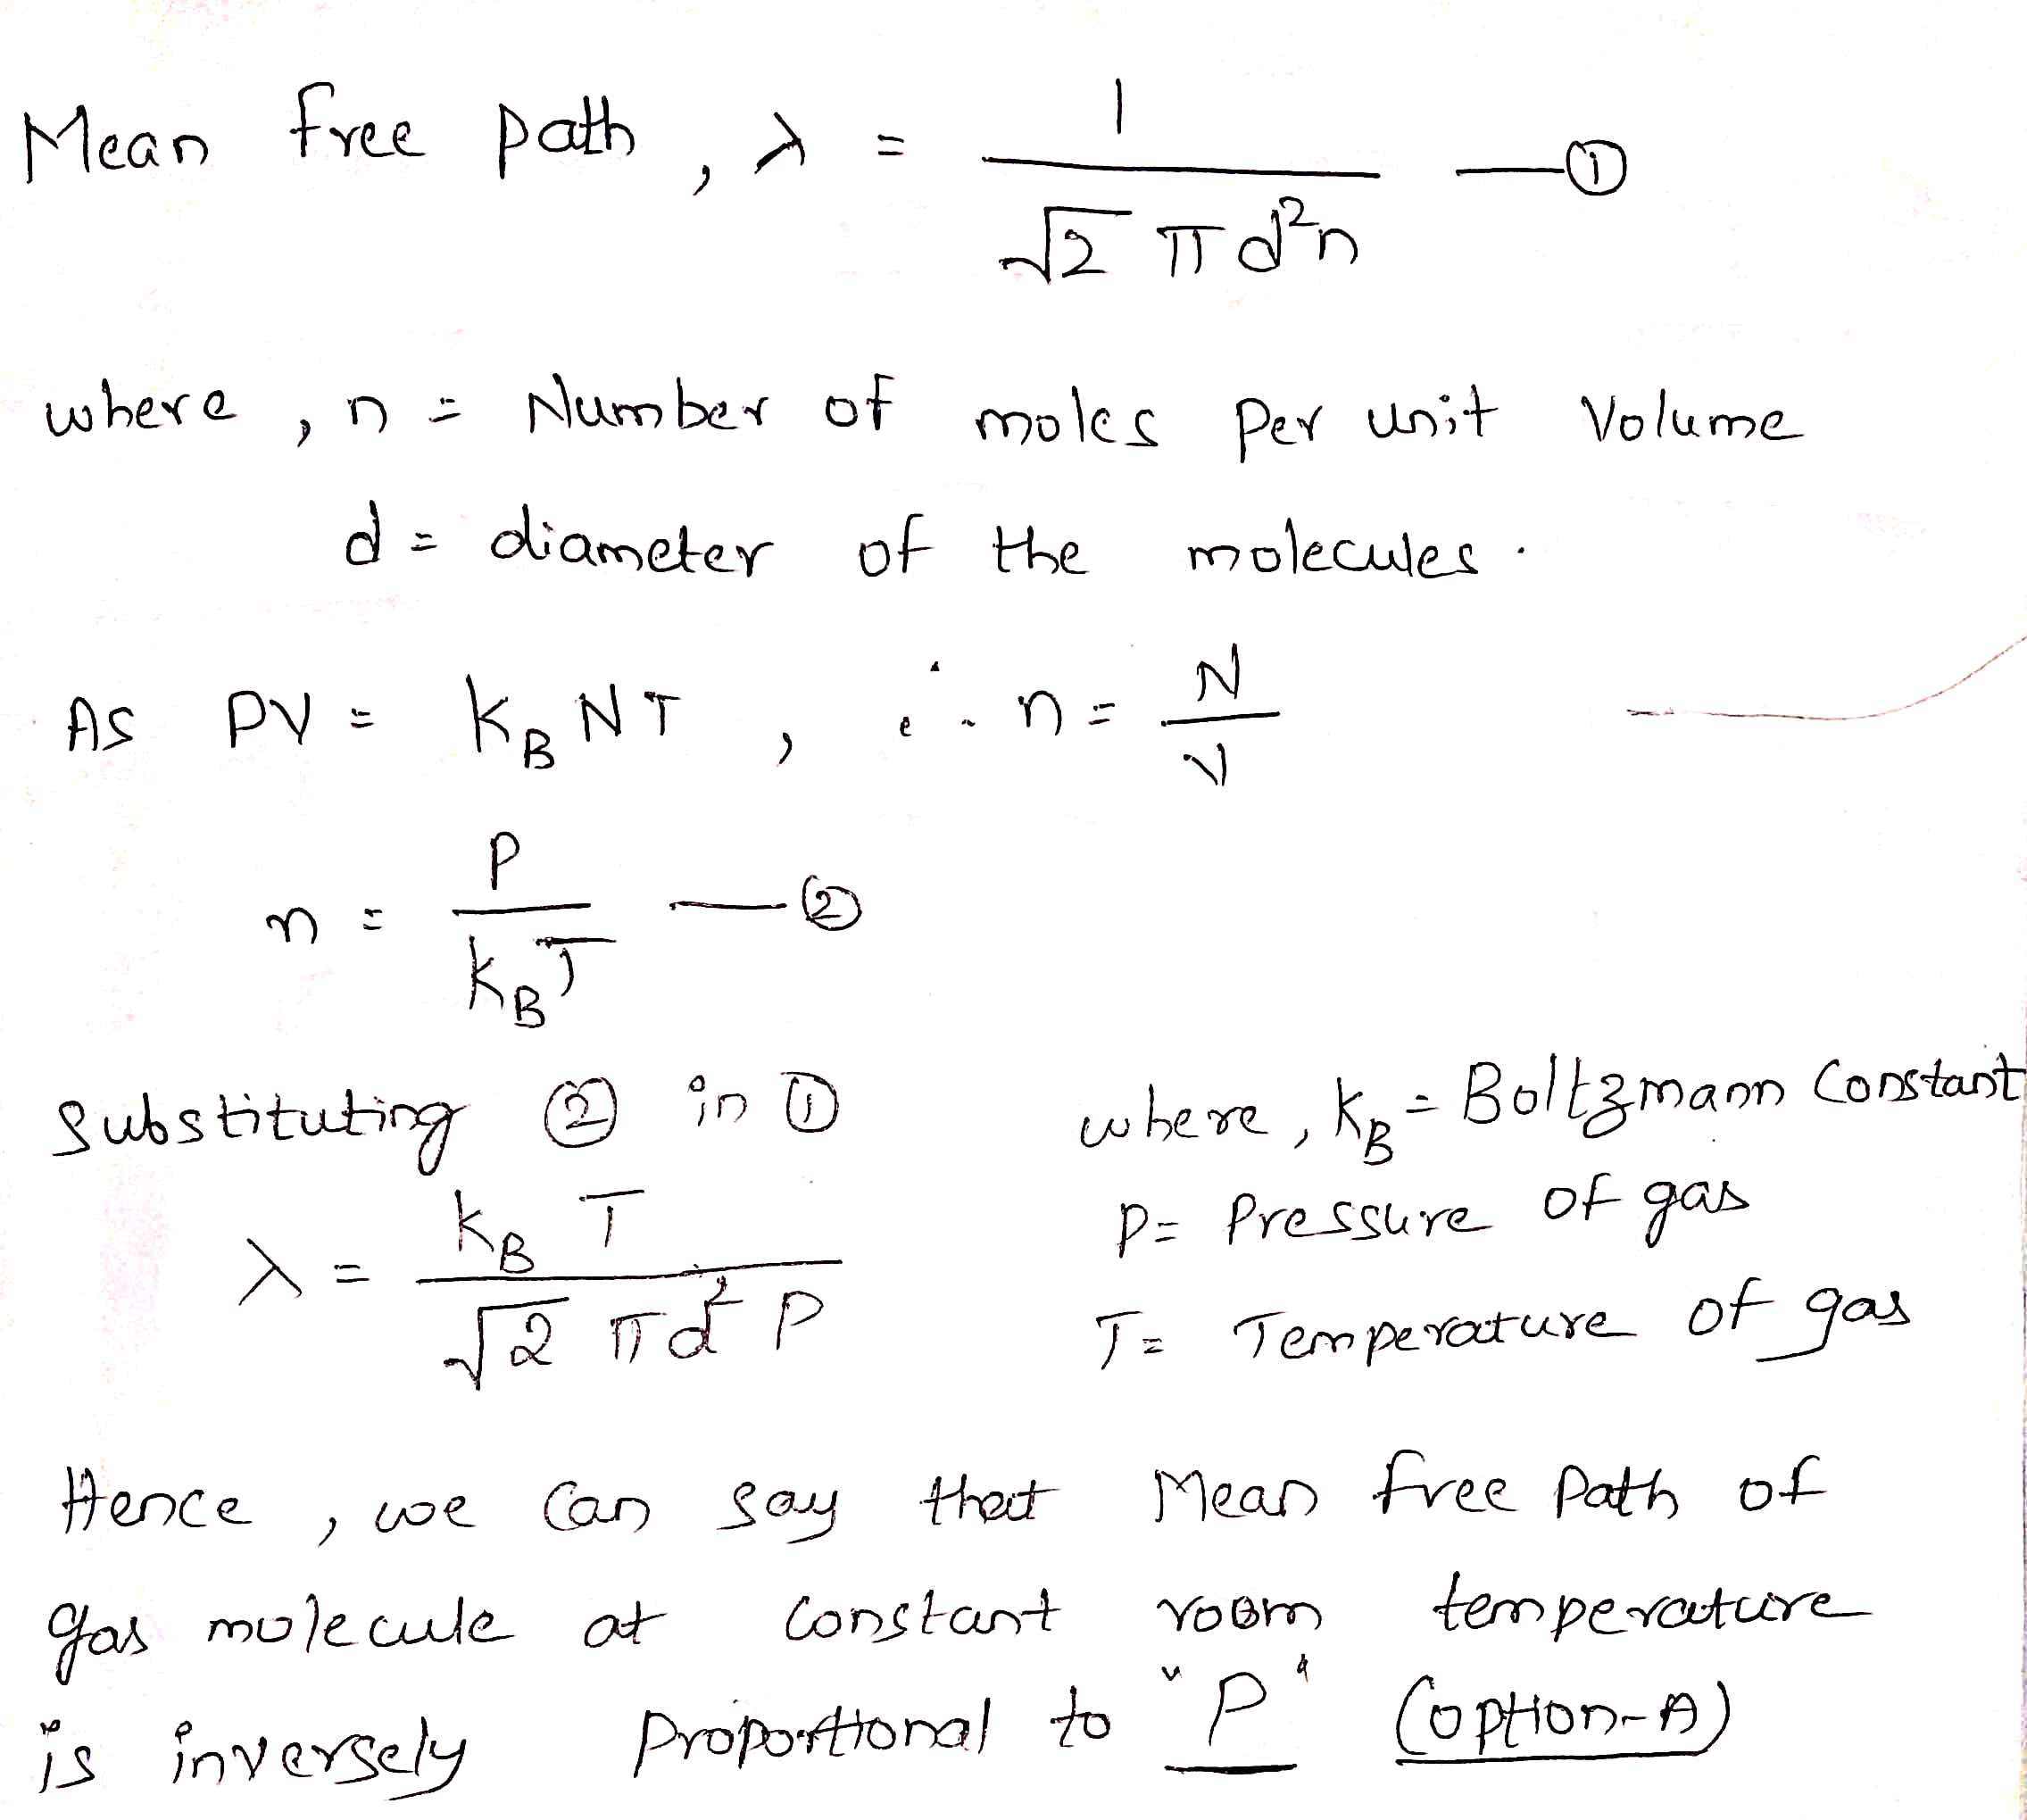 Mean free path, λ = 1 / √2 πd²n —①
where, n = Number of moles per unit Volume
d = diameter of the molecules.
As PV = K_B NT, ∴ n = N / V
n = P / K_B T —②
Substituting ② in ①
where, K_B = Boltzmann Constant
λ = K_B T / √2 πd² P
P = Pressure of gas
T = Temperature of gas
Hence, we can say that Mean free Path of
gas molecule at constant room temperature
is inversely proportional to "P" (option-A)